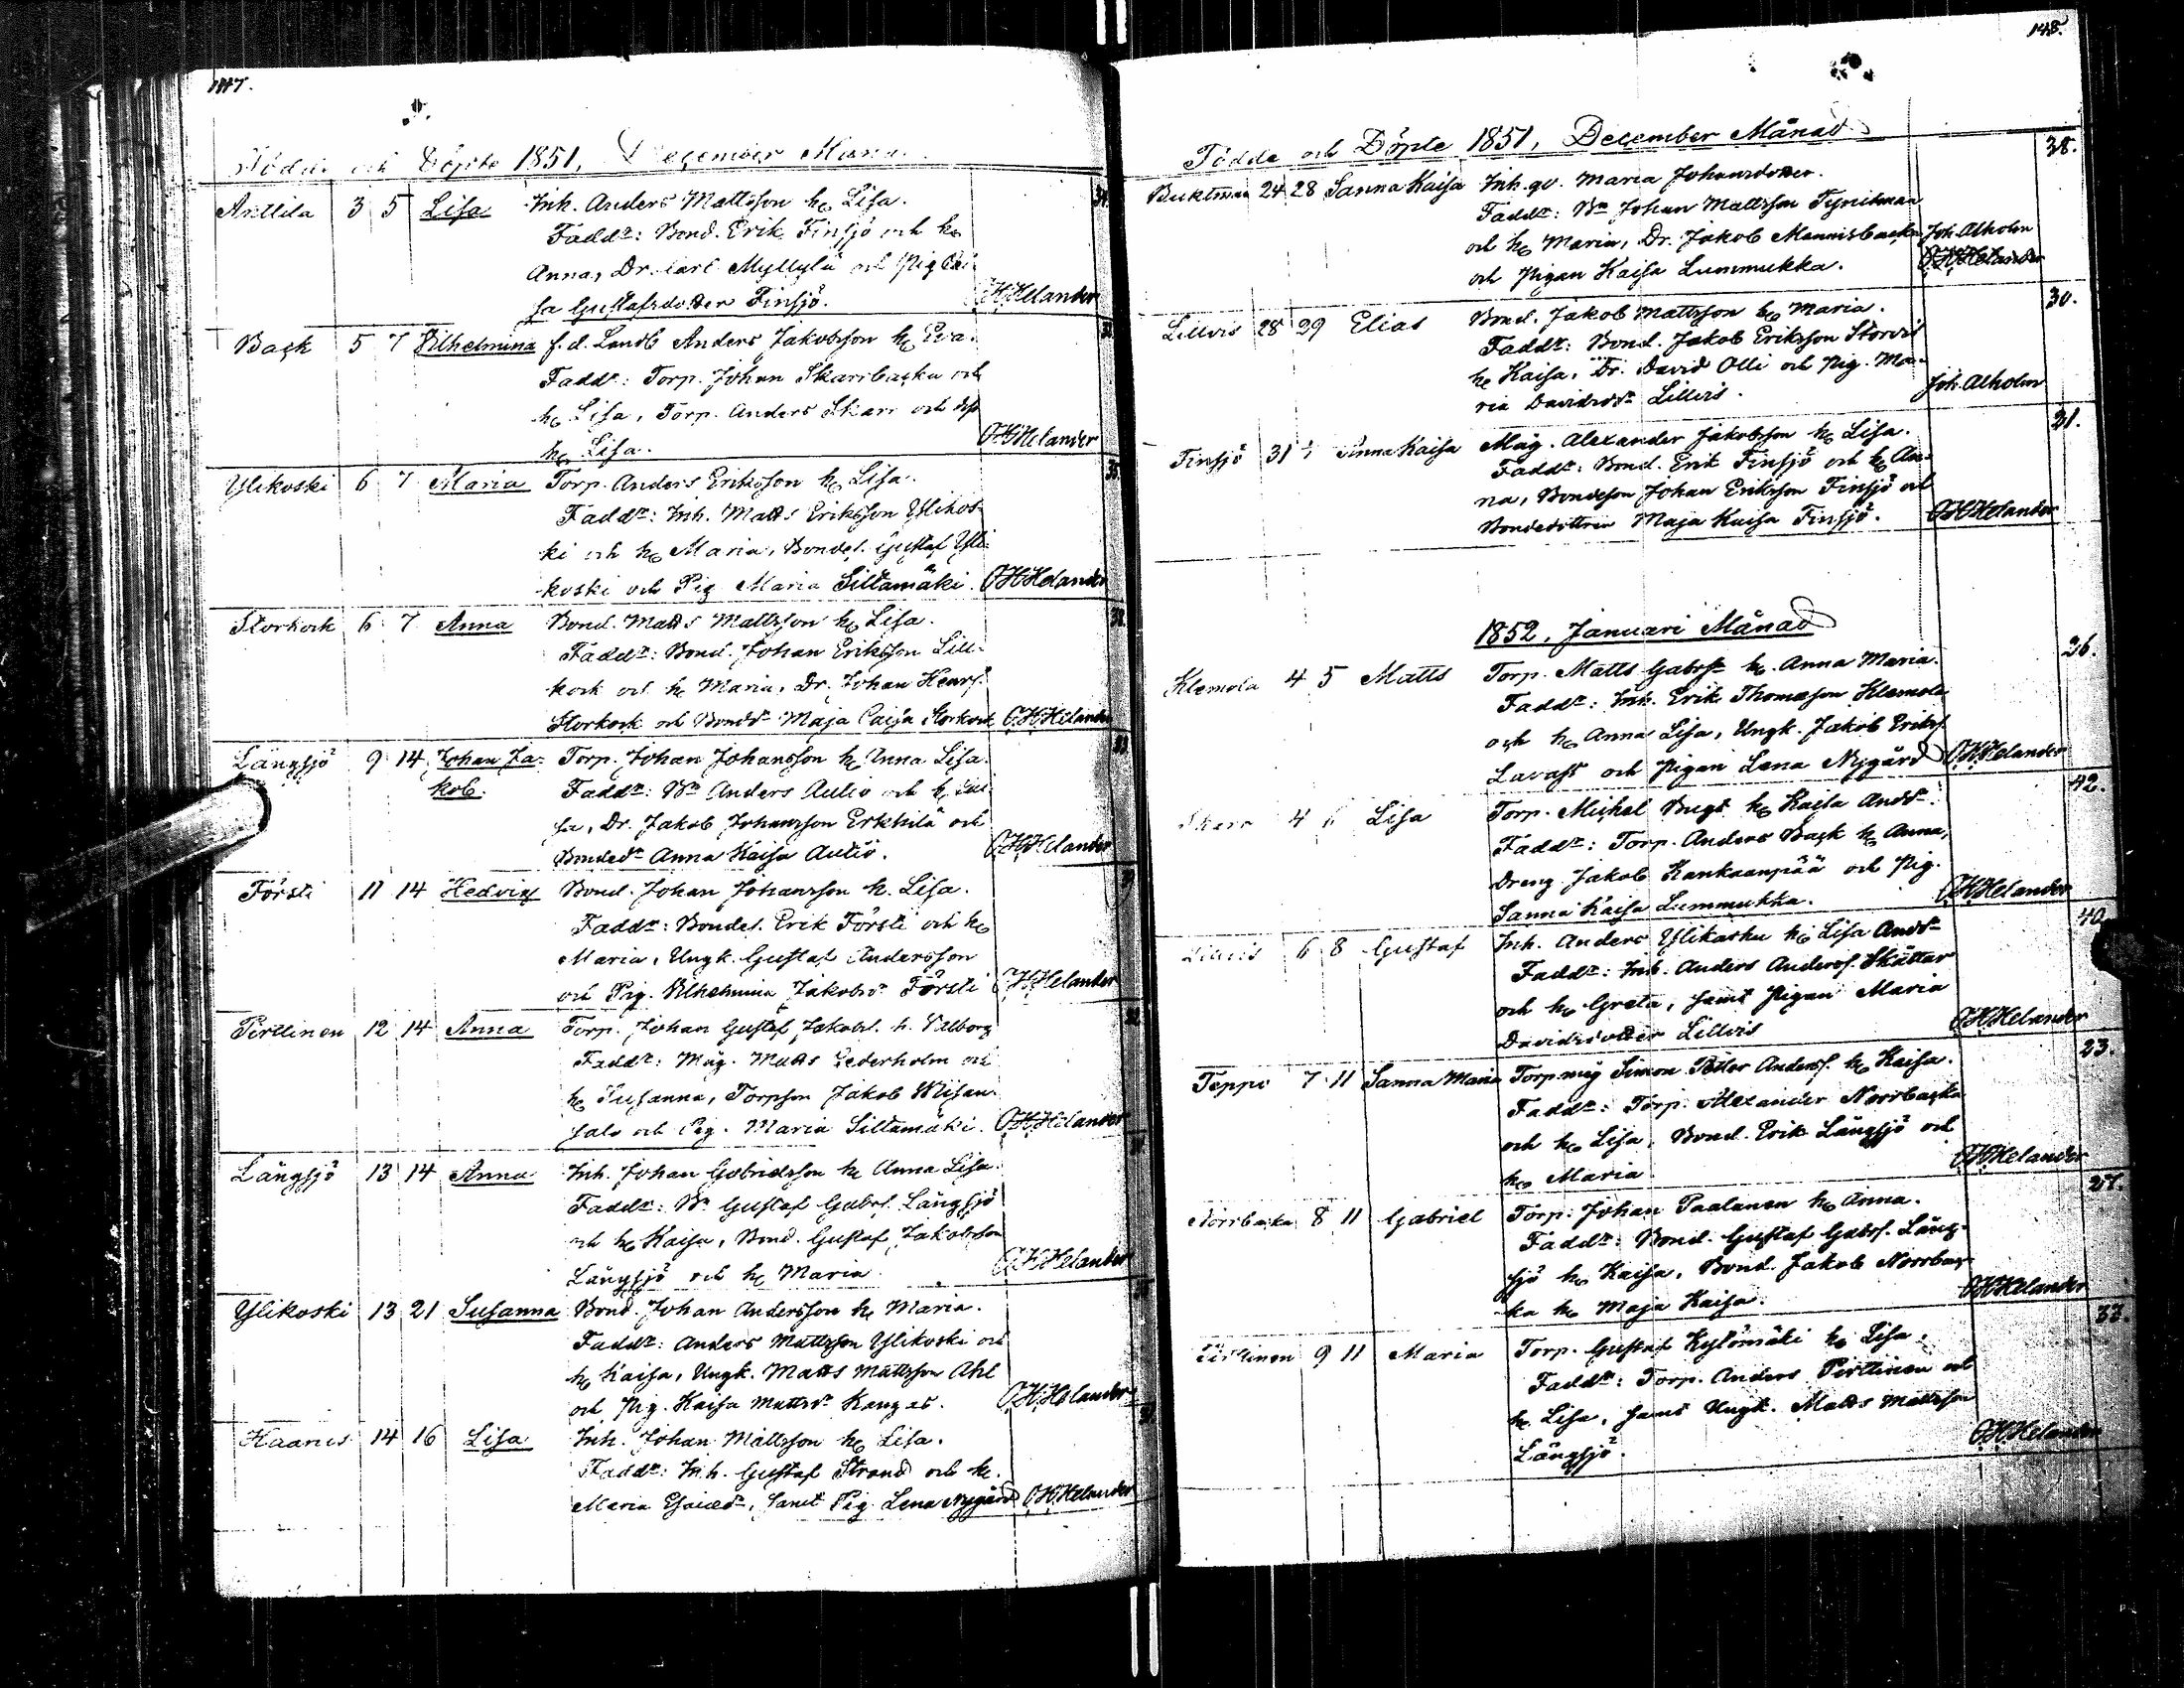 147.
Födde och Döpte 1851, December Månad
Anttila 3 5 Lisa Inh. Anders Mattsson h. Lisa. 34.
Faddr: Bond. Erik Finsjö och h.
Anna, Dr. Carl Myllylä och Pig
sa Gustafsdotter Finsjö. CHHelander
Back 5 7 Vilhelmina f.d. Landb Anders Jakobsson h. Eva.
Faddr: Torp. Johan Skarrbacka och
h. Lisa, Torp. Anders Skarr och dess
h. Lisa. CHHelander
Ylikoski 6 7 Maria Torp. Anders Eriksson h. Lisa.
Faddr: Inh. Matts Eriksson Ylikos-
ki och h. Maria, Bondes. Gustaf Yli-
koski och Pig Maria Siltamäki. CHHelander
Storkock 6 7 Anna Bond. Matts Mattsson h. Lisa.
Faddr: Bond. Johan Eriksson Lill-
kock och h. Maria, Dr. Johan Henrs.
Storkock och Bondd. Maja Caisa Storkock CHHelander
Långsjö 9 14 Johan Ja- Torp. Johan Johansson h. Anna Lisa.
kob. Faddr: Bn Anders Autio och h. Cai-
sa, Dr. Jakob Johansson Erkkilä och
Bonded. Anna Kaisa Autio. CHHelander
Försti 11 14 Hedvig Bond. Johan Johansson h. Lisa.
Faddr: Bondes. Erik Försti och h.
Maria, Ungk. Gustaf Andersson
och Pig. Vilhelmina Jakobsd. Försti CHHelander
Perttinen 12 14 Anna Torp. Johan Gustaf Jakobs. h. Valborg
Faddr: Måg. Matts Cederholm och
h. Susanna, Torpson Jakob Wiisan-
salo och Pig. Maria Siltamäki. CHHelander
Långsjö 13 14 Anna Inh. Johan Gabrielsson h. Anna Lisa.
Faddr: Bn Gustaf Gabrs. Långsjö
och h. Kaisa, Bond. Gustaf Jakobsson
Långsjö och h. Maria. CHHelander
Ylikoski 13 21 Susanna Bond. Johan Andersson h. Maria.
Faddr: Anders Mattsson Ylikoski och
h. Kaisa, Ungk. Matts Mattsson Ahl
och Pig. Kaisa Mattsdr Kangas. CHHelander
Haanes 14 16 Lisa Inh. Johan Mattsson h. Lisa.
Faddr: Inh. Gustaf Strand och h.
Maria Esaiædr, samt Pig. Lena Nygård CHHelander
148.
Födde och Döpte 1851, December Månad
24 28 Sanna Kaisa Inh. qv. Maria Johansdotter. 38.
Faddr: Bn Johan Mattsson Tynitmaa
och h. Maria, Dr. Jakob Mannisbacka Joh. Alholm
och Pigan Kaisa Lummukka. CHHelander
Lillvis 28 29 Elias Bond. Jakob Mattsson h. Maria. 30.
Faddr: Bond. Jakob Eriksson Storvis
h. Kaisa, Dr. David Olli och Pig. Ma-
ria Davidsdr Lillvis. Joh. Alholm
Finsjö 31 Anna Kaisa Måg. Alexander Jakobsson h. Lisa. 21.
Faddr: Bond. Erik Finsjö och h. An-
na, Bondeson Johan Eriksson Finsjö och
Bondedottren Maja Kaisa Finsjö. CHHelander
1852, Januari Månad
Klemola 4 5 Matts Torp. Matts Gabrsn h. Anna Maria. 26.
Faddr: Inh. Erik Thomasson Klemola
och h. Anna Lisa, Ungk. Jakob Eriks.
Lavast och Pigan Lena Nygård CHHelander
Skarr 4 6 Lisa Torp. Michel Bugs h. Kaisa Andr. 42.
Faddr: Torp. Anders Back h. Anna,
Dreng Jakob Kankaanpää och Pig.
Sanna Kaisa Lummukka. CHHelander
Lillvis 6 8 Gustaf Inh. Anders Ylikaski h. Lisa Andr 40
Faddr: Inh. Anders Anderss. Skättar
och h. Greta, samt Pigan Maria
Davidsdotter Lillvis CHHelander
Teppo 7 11 Sanna Maria Torp.måg Simon Petter Anderss. h. Kaisa. 23.
Faddr: Torp. Alexander Norrbacka
och h. Lisa, Bond. Erik Långsjö och
h. Maria CHHelander
Norrbacka 8 11 Gabriel Torp. Johan Paalanen h. Anna. 27.
Faddr: Bond. Gustaf Gabrs. Lång-
sjö h. Kaisa, Bond. Jakob Norrbac-
ka h. Maja Kaisa. CHHelander
Perttinen 9 11 Maria Torp. Gustaf Kylömäki h. Lisa. 33.
Faddr: Torp. Anders Perttinen och
h. Lisa, samt Ungk. Matts Mattsson
Långsjö. CHHelander